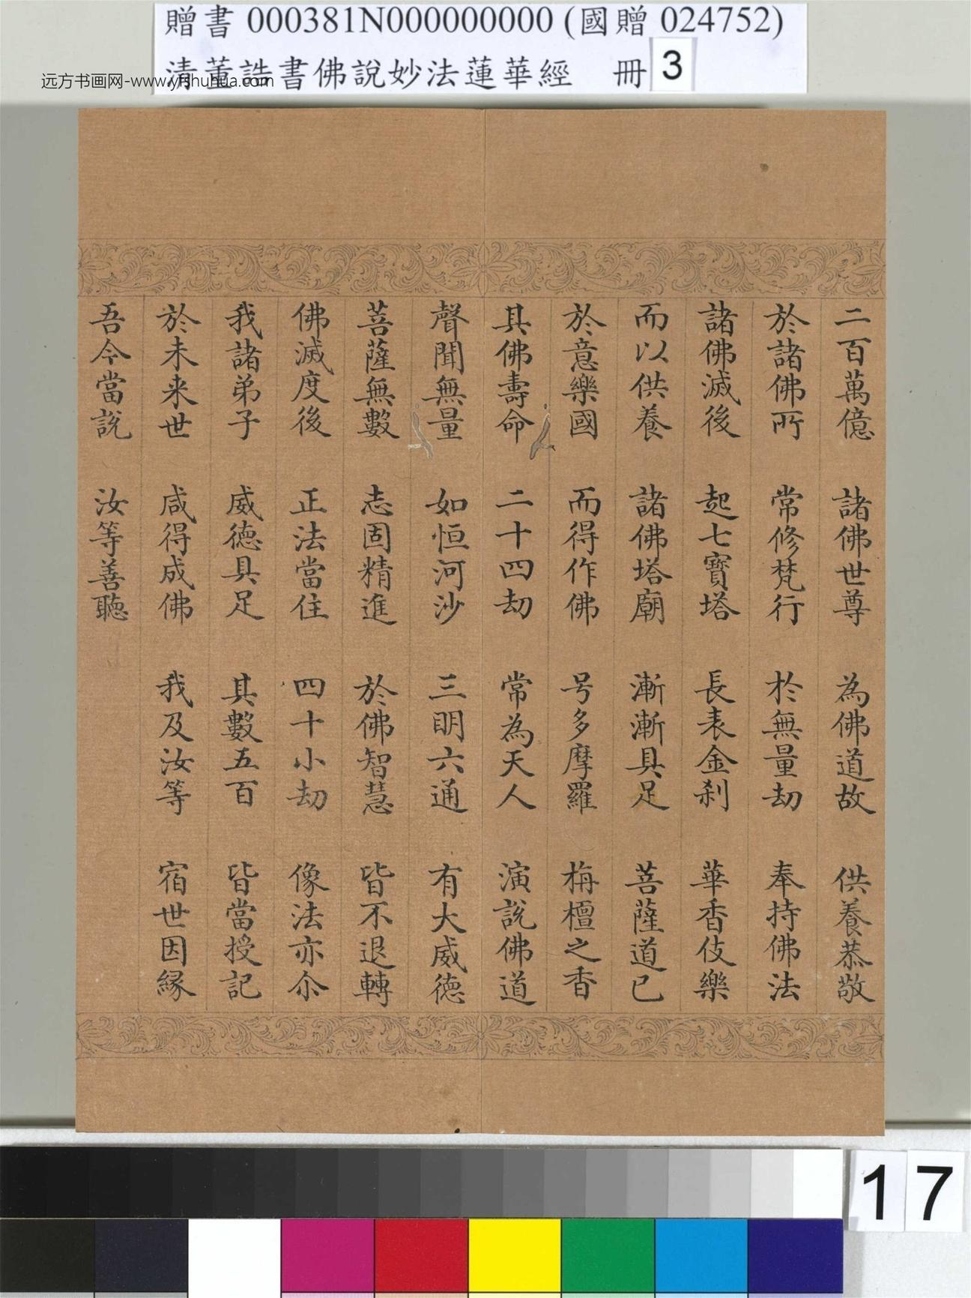 贈書 000381N000000000 (國贈 024752)
清董誥書佛說妙法蓮華經 冊 3
远方书画网-www.yfshuhua.com
二百萬億 諸佛世尊 為佛道故 供養恭敬
於諸佛所 常修梵行 於無量劫 奉持佛法
諸佛滅後 起七寶塔 長表金刹 華香伎樂
而以供養 諸佛塔廟 漸漸具足 菩薩道已
於意樂國 而得作佛 号多摩羅 栴檀之香
其佛壽命 二十四劫 常為天人 演說佛道
聲聞無量 如恒河沙 三明六通 有大威德
菩薩無數 志固精進 於佛智慧 皆不退轉
佛滅度後 正法當住 四十小劫 像法亦尒
我諸弟子 威德具足 其數五百 皆當授記
於未来世 咸得成佛 我及汝等 宿世因緣
吾今當說 汝等善聽
17